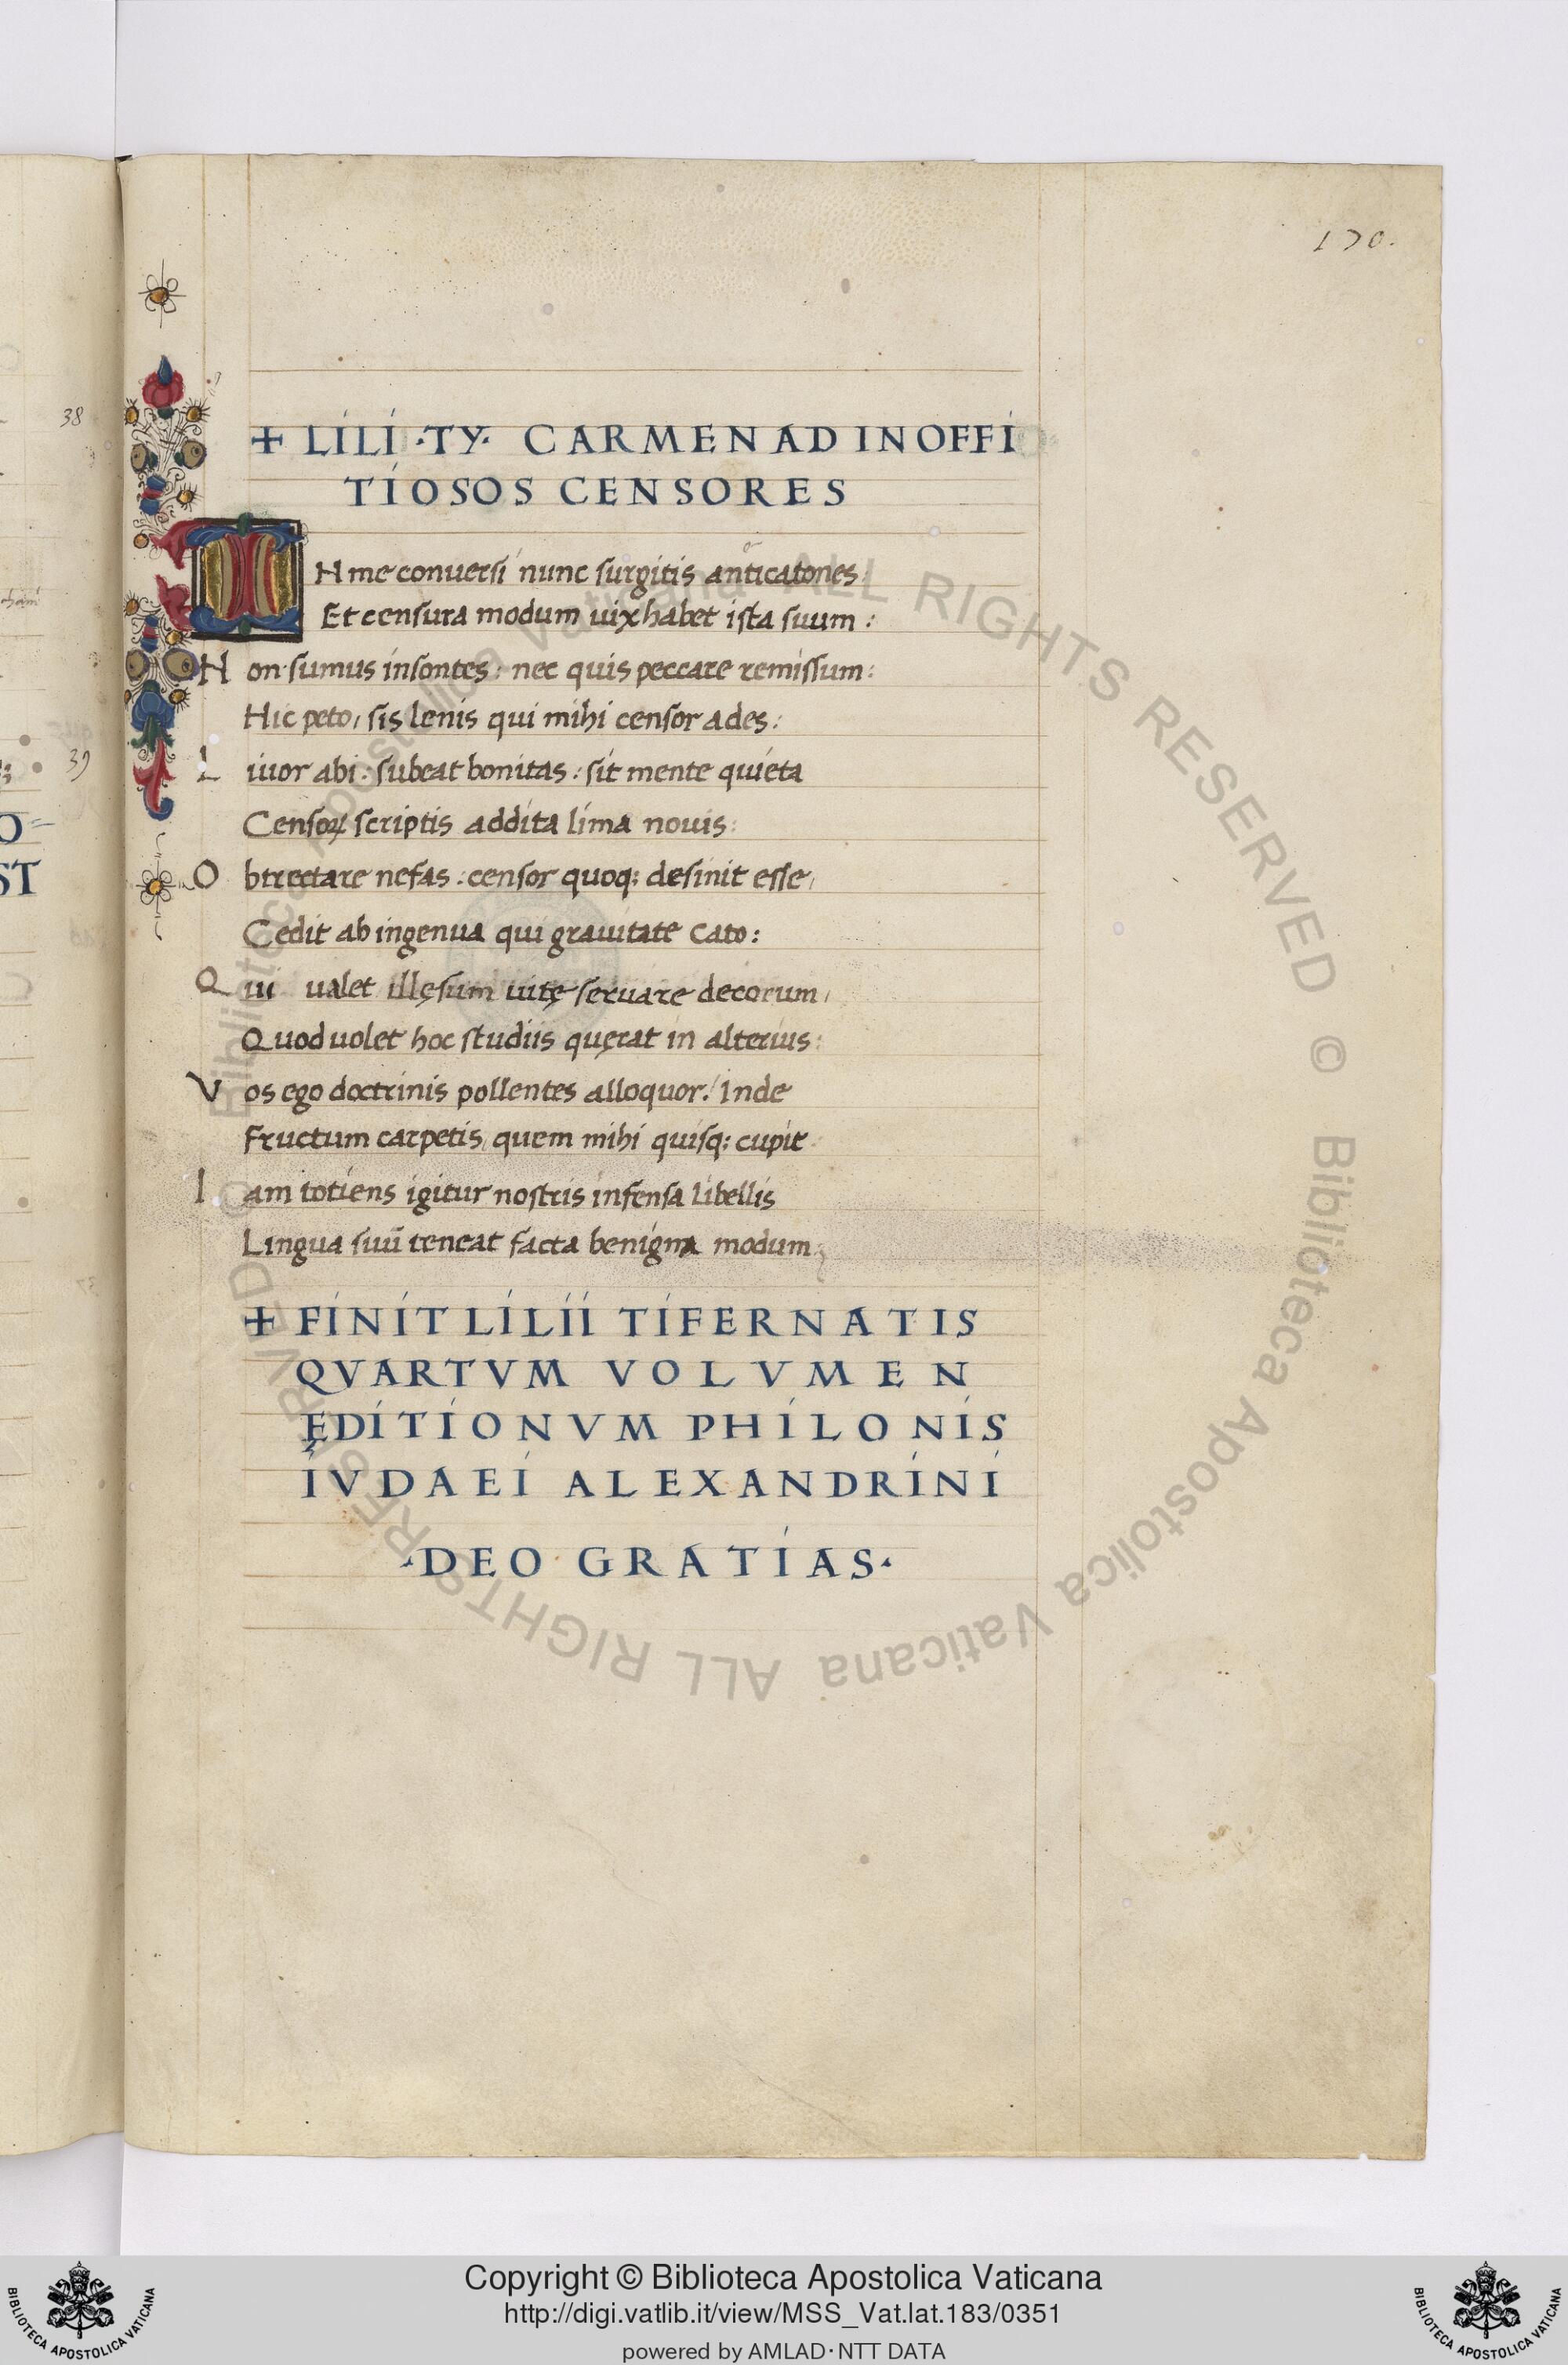 170.
38
+ LILI ·TY· CARMEN AD INOFFI
TIOSOS CENSORES
IN me conuersi nunc surgitis anticatones:
Et censura modum uix habet ista suum:
Non sumus insontes: nec quis peccare remissum:
Hic peto, sis lenis qui mihi censor ades:
39
Liuor abi: subeat bonitas: sit mente quieta
Censoꝝ scriptis addita lima nouis:
O
ST
Obtrectare nefas: censor quoq; desinit esse,
Cedit ab ingenua qui grauitate Cato:
Qui ualet illęsum uitę seruare decorum,
Quod uolet hoc studiis quęrat in alterius:
Vos ego doctrinis pollentes alloquor: Inde
Fructum carpetis, quem mihi quisq; cupit
Iam totiens igitur nostris infensa libellis
Lingua suū teneat facta benigna modum;
+ FINIT LILII TIFERNATIS
QVARTVM VOLVMEN
ĘDITIONVM PHILONIS
IVDAEI ALEXANDRINI
·DEO GRATIAS·
Biblioteca Apostolica Vaticana ALL RIGHTS RESERVED © Biblioteca Apostolica Vaticana ALL RIGHTS RESERVED ©
Copyright © Biblioteca Apostolica Vaticana
http://digi.vatlib.it/view/MSS_Vat.lat.183/0351
powered by AMLAD·NTT DATA
BIBLIOTECA APOSTOLICA VATICANA
BIBLIOTECA APOSTOLICA VATICANA